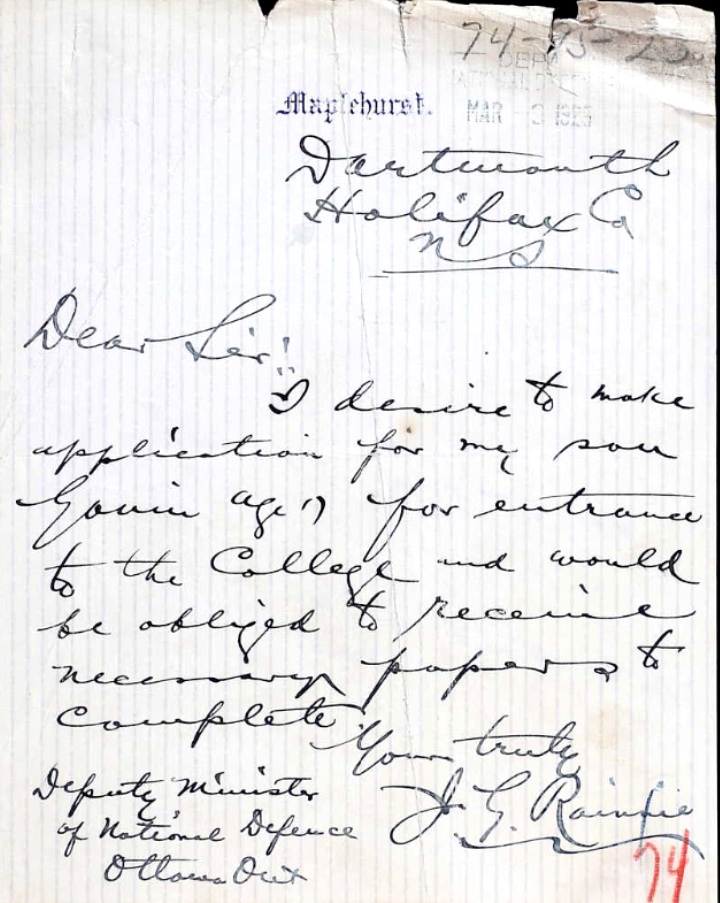 74-95-25
DEPT
NATIONAL DEFENCE
Maplehurst.
MAR - 3 1925
Dartmouth
Halifax Co
N S
Dear Sir:
I desire to make
application for my son
Gavin age 17 for entrance
to the College and would
be obliged to receive
necessary papers to
complete.
Yours truly
J. G. Rainnie
Deputy Minister
of National Defence
Ottawa Ont
74